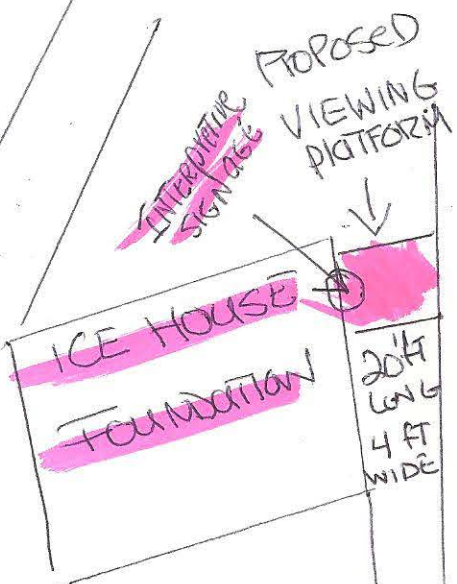 PROPOSED
VIEWING
PLATFORM
INTERPRETIVE
SIGNAGE
ICE HOUSE
FOUNDATION
20 FT
LONG
4 FT
WIDE